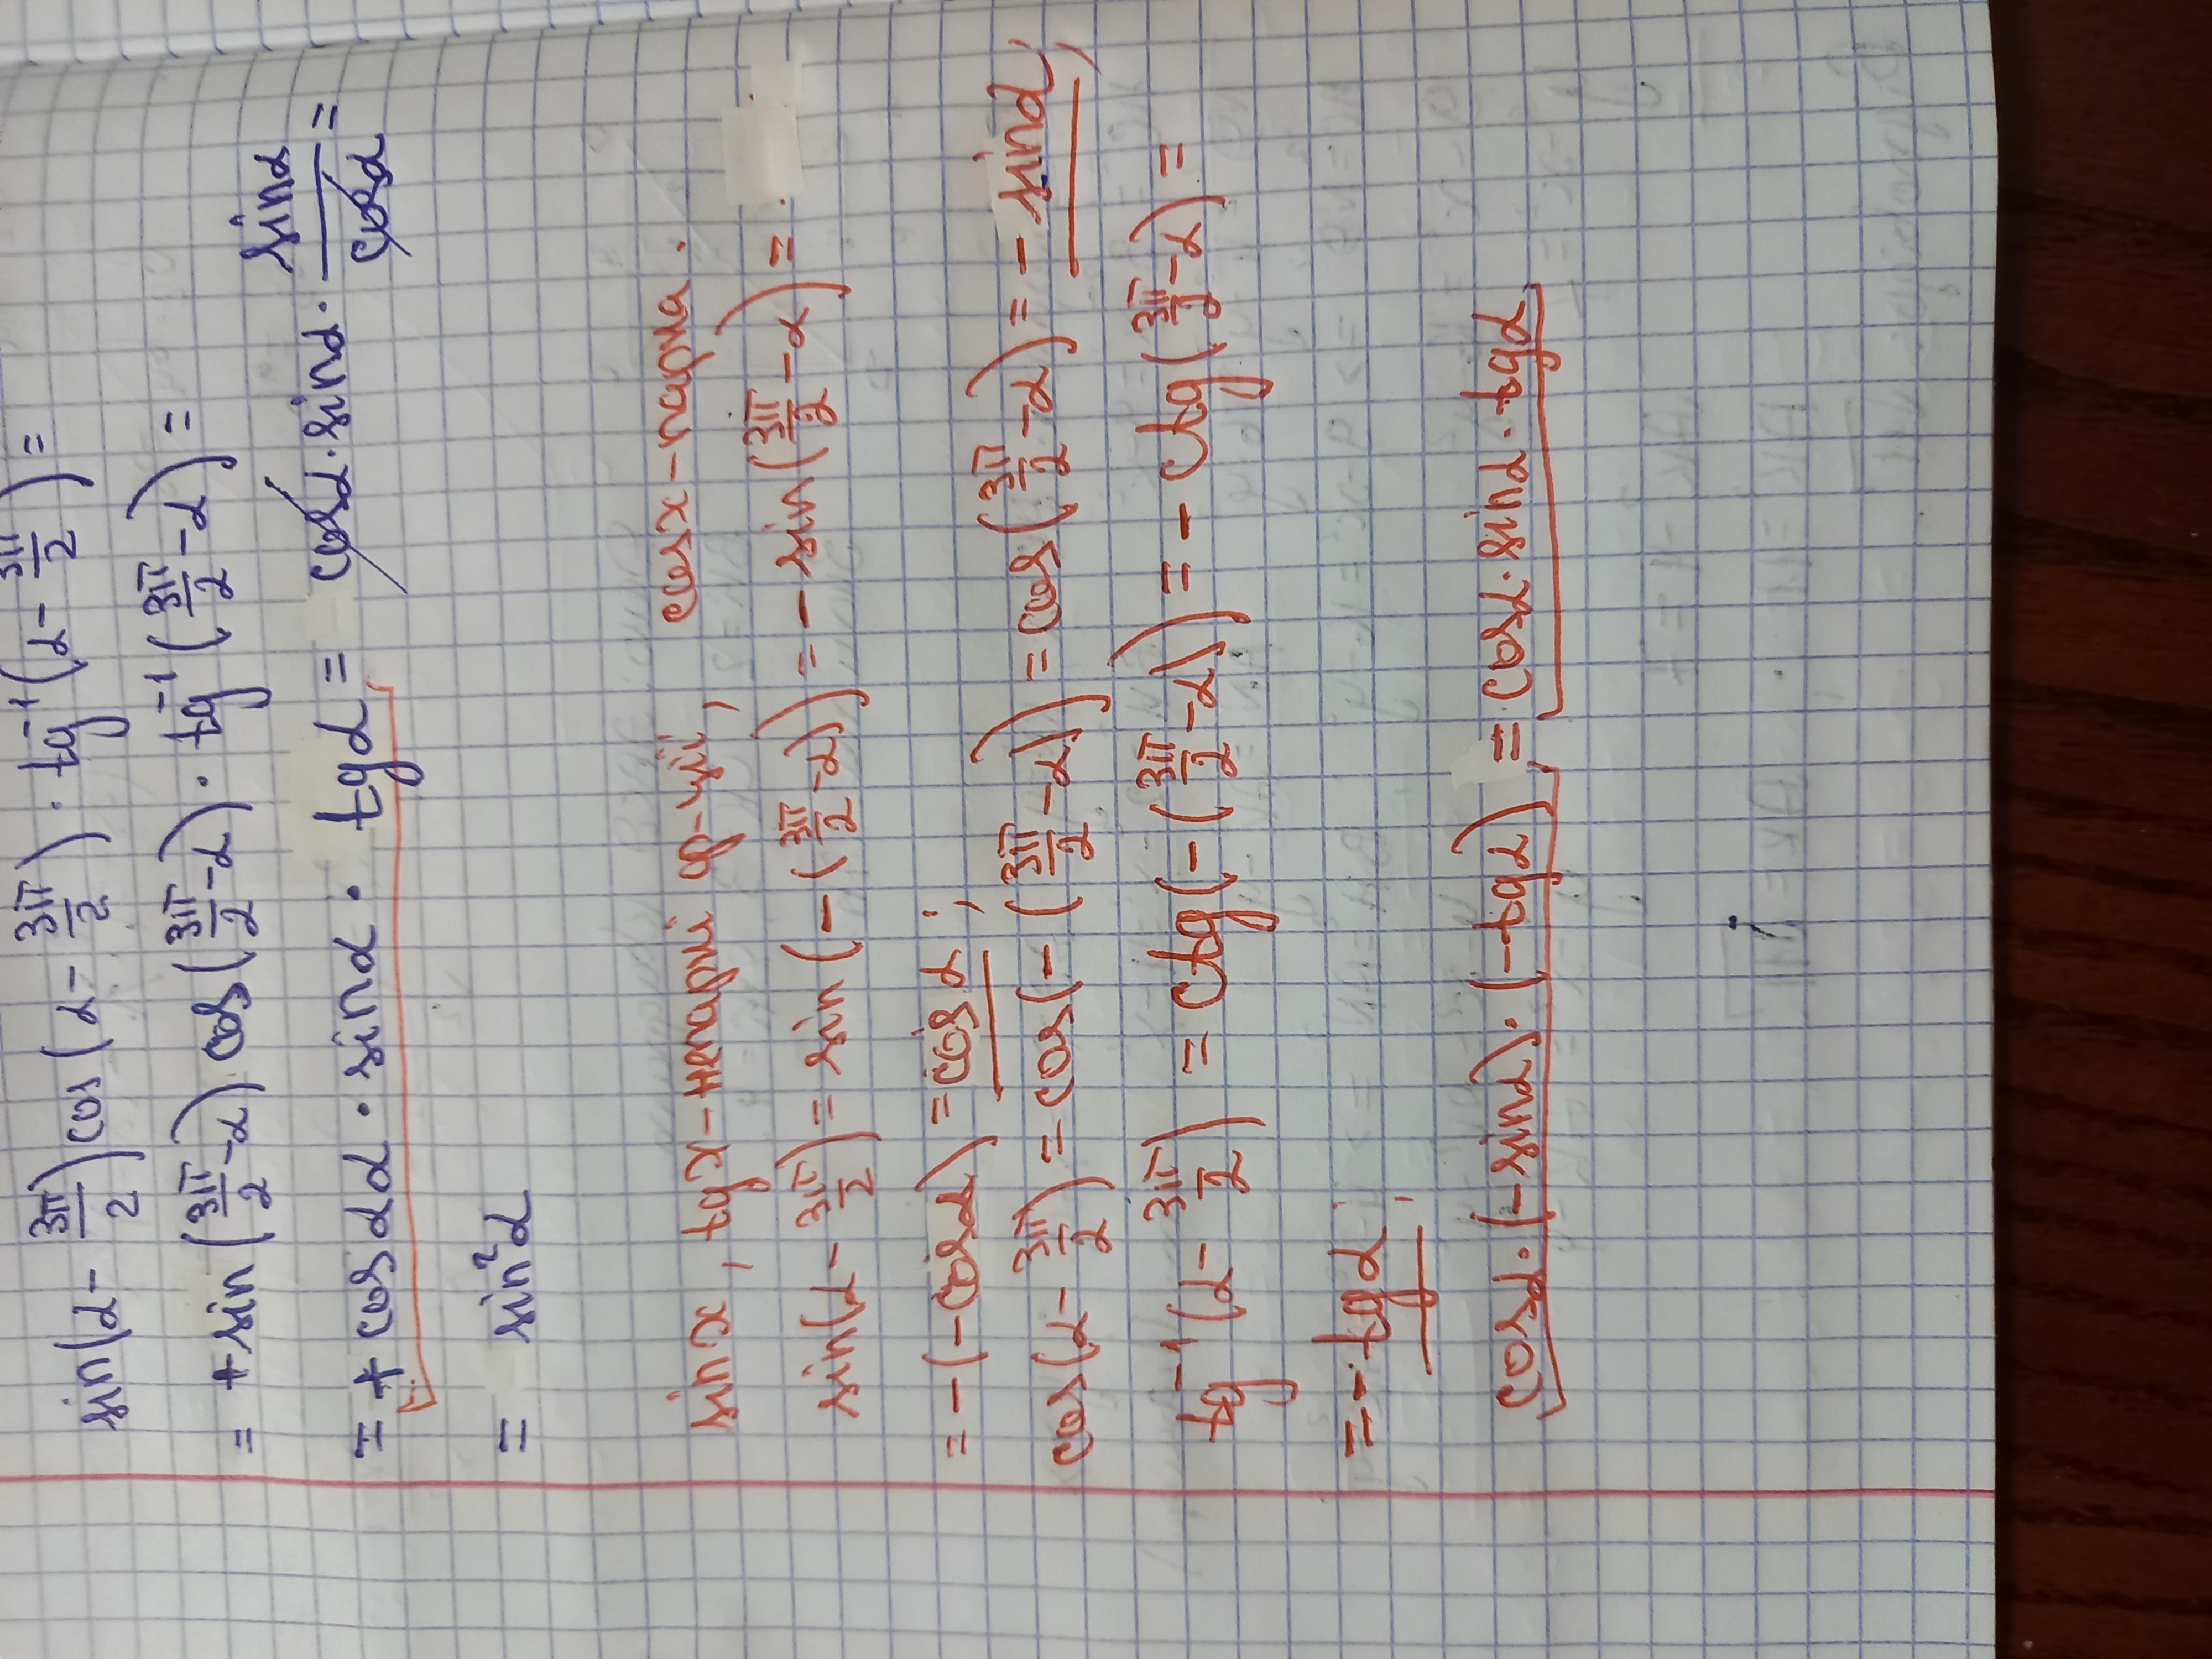 sin(α - 3π/2) cos(α - 3π/2) · tg⁻¹(α - 3π/2) =
= + sin(3π/2 - α) cos(3π/2 - α) · tg⁻¹(3π/2 - α) =
= + cos α · sin α · tg α = cos α · sin α · sin α/cos α =
= sin²α
sin x, tg x - непарні ф-ції, cos x - парна.
sin(α - 3π/2) = sin(-(3π/2 - α)) = - sin(3π/2 - α) =
= -(-cos α) = cos α;
cos(α - 3π/2) = cos(-(3π/2 - α)) = cos(3π/2 - α) = - sin α;
tg⁻¹(α - 3π/2) = ctg(-(3π/2 - α)) = - ctg(3π/2 - α) =
= - tg α;
cos α · (-sin α) · (-tg α) = cos α · sin α · tg α